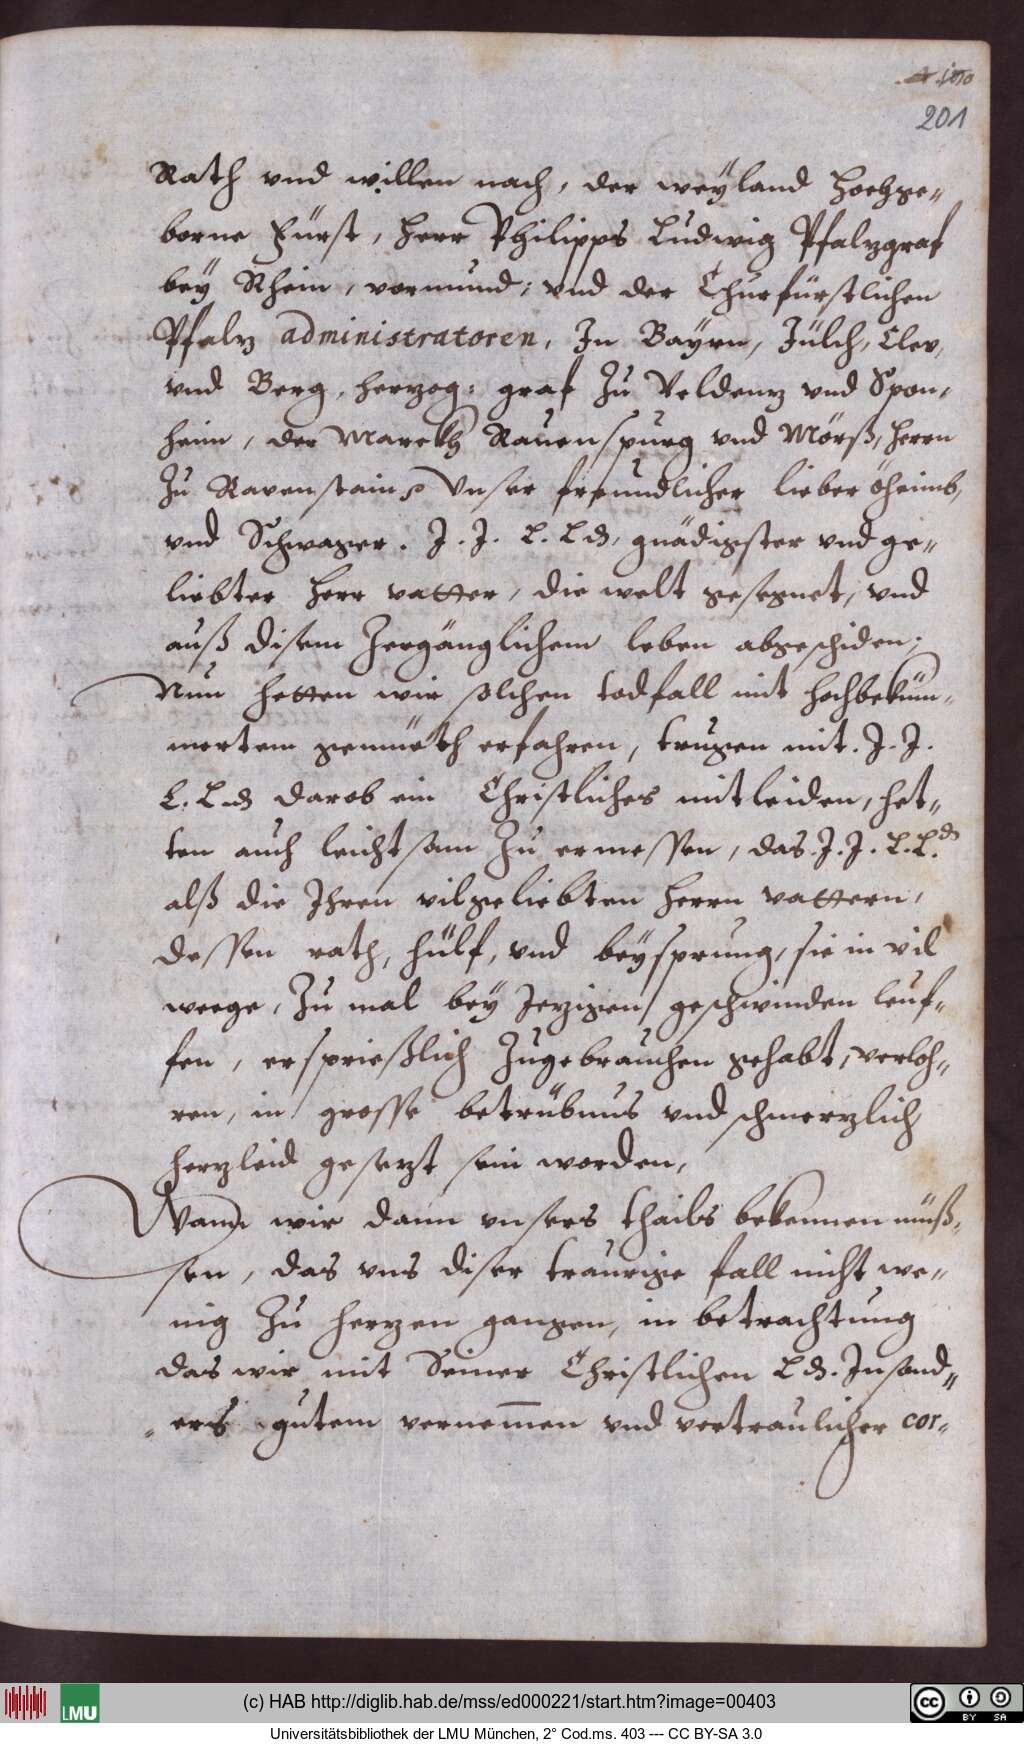 201
Rath vnd willen nach, der weÿland Hochge-
borne Fürst, Herr Philipps Ludwig Pfalzgraf
beÿ Rhein, vormund; vnd der Churfürstlichen
Pfalz administratoren, In Baÿrn, Jülch, Clev,
vnd Berg, herzog: graf Zu Veldenz vnd Spon-
heim, der Marckh Rauenspurg vnd Mörß, Herrn
Zu Ravenstain Vnser freundlicher lieber öheimb,
vnd Schwager. J. J. L. Ld. gnädigster vnd ge-
liebter Herr vatter, die welt gesegnet, vnd
auß disem Zergänglichem leben abgeschiden;
Nun hetten wir solchen todfall mit hochbeküm-
mertem gemüeth erfahren, trugen mit. J. J.
L. Ld darob ein Christliches mitleiden, het-
ten auch leichtsam Zu ermessen, das. J. J. L. Ld.
alß die Ihren vilgeliebten Herrn vattern,
dessen rath, hülf, vnd beÿsprung, sie in vil
weege, Zu mal beÿ Jezigen geschwinden leuf-
fen, ersprießlich Zugebrauchen gehabt, verloh-
ren, in grosse betrübnus vnd schmerzlich
herzleid gesezt sein worden,
Wann wir dann vnsers thails bekennen müß-
sen, das vns diser traurige fall nicht we-
nig Zu herzen gangen, in betrachtung
das wir mit Seiner Christlichen Ld. Insond-
ers gutem vernem̄en vnd vertraulicher cor-
(c) HAB http://diglib.hab.de/mss/ed000221/start.htm?image=00403
LMU
cc BY SA
Universitätsbibliothek der LMU München, 2° Cod.ms. 403 --- CC BY-SA 3.0